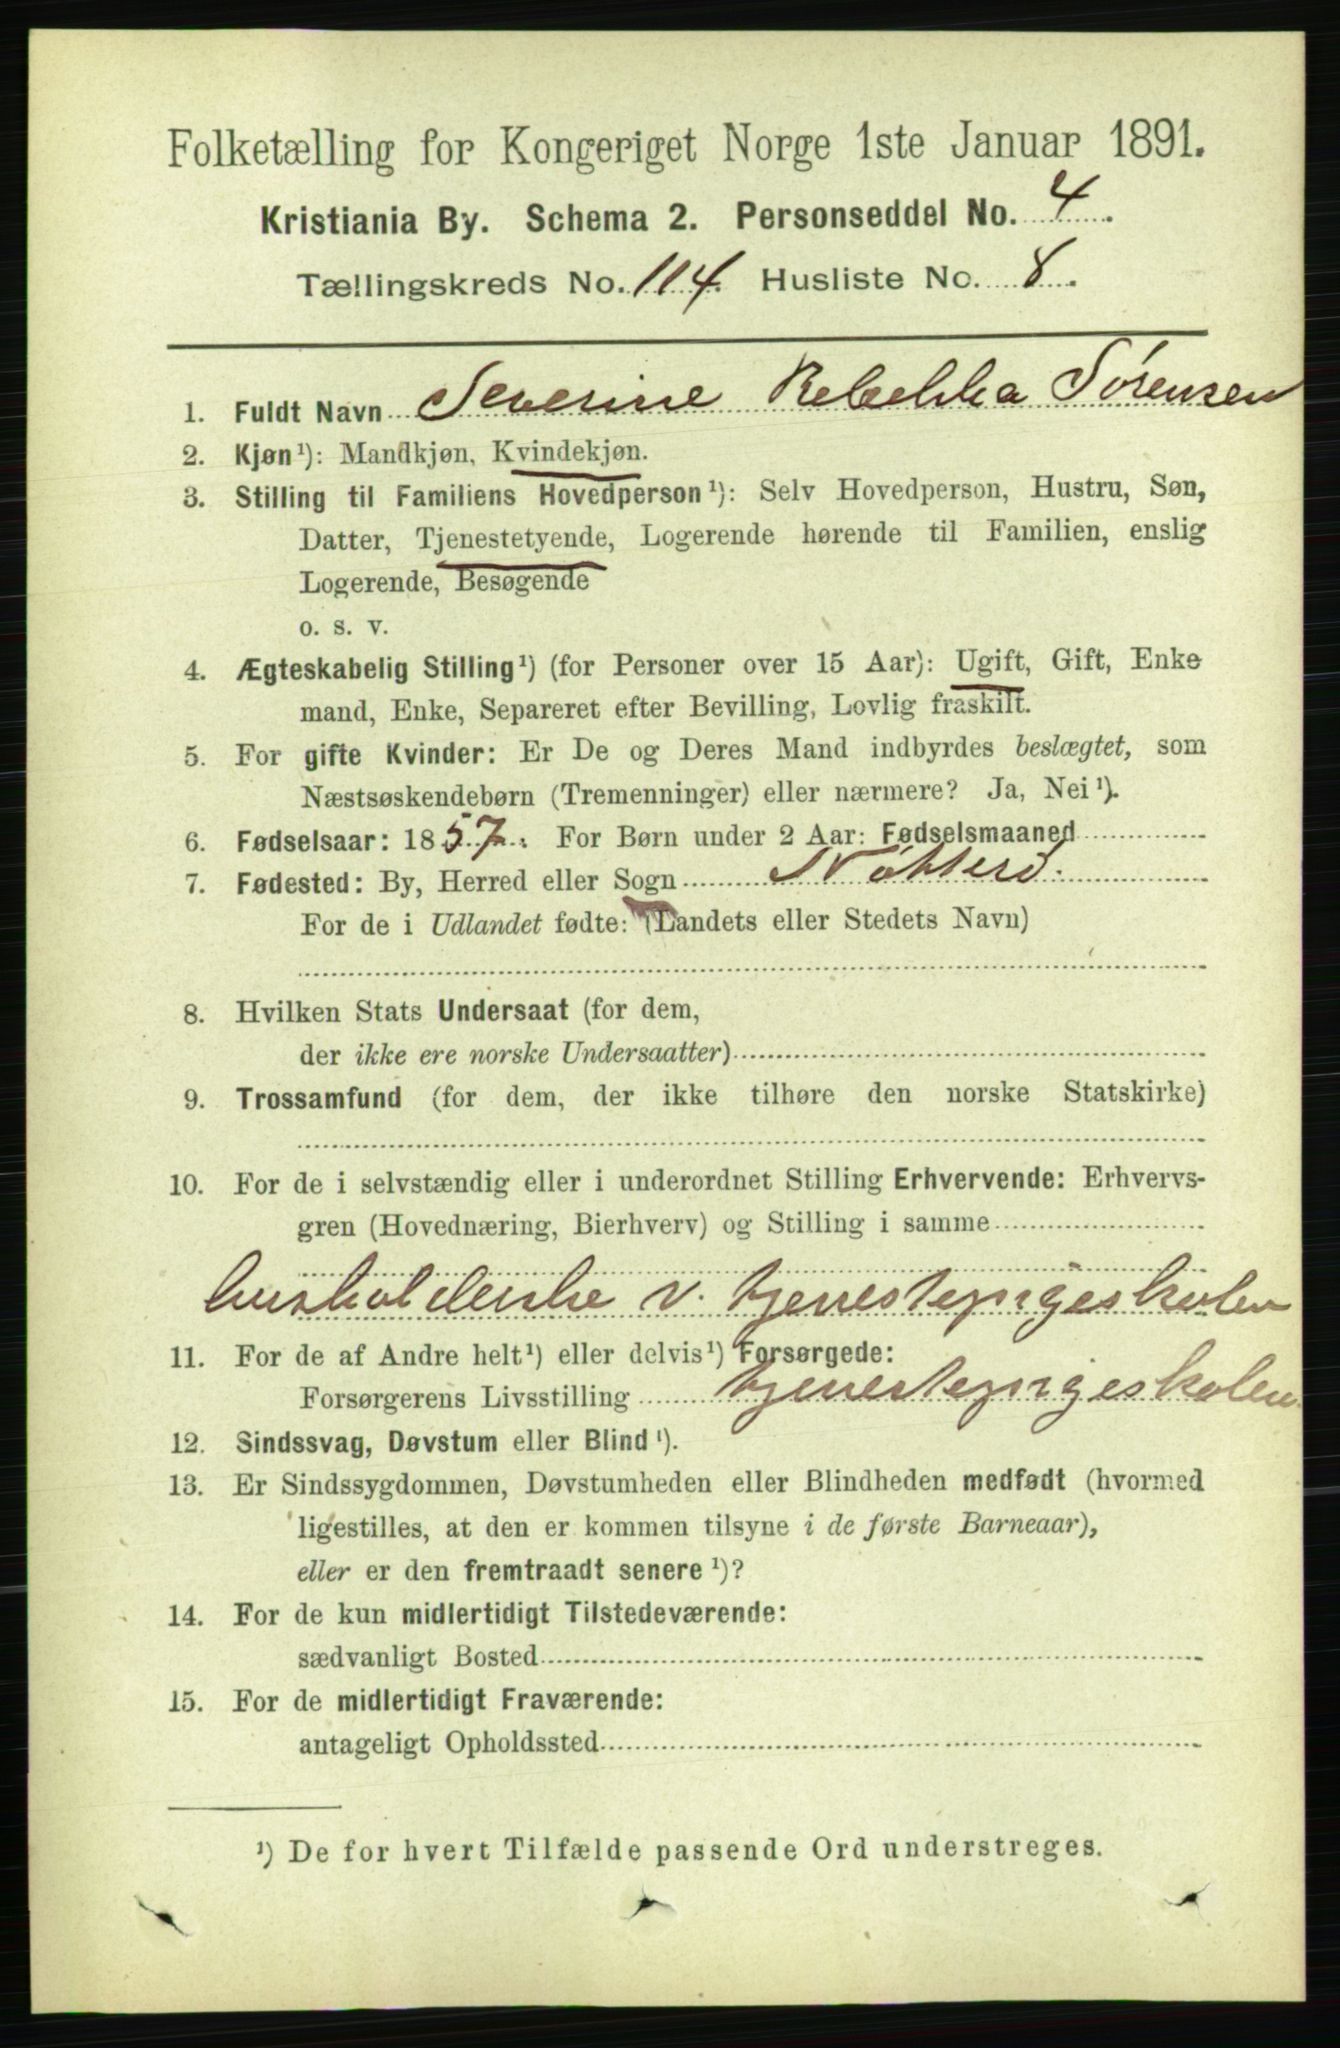 Folketælling for Kongeriget Norge 1ste Januar 1891.
Kristiania By. Schema 2. Personseddel No. 4.
Tællingskreds No. 114. Husliste No. 8.
1. Fuldt Navn Severine Rebekka Sørensen
2. Kjøn¹): Mandkjøn, Kvindekjøn.
3. Stilling til Familiens Hovedperson¹): Selv Hovedperson, Hustru, Søn,
Datter, Tjenestetyende, Logerende hørende til Familien, enslig
Logerende, Besøgende
o. s. v.
4. Ægteskabelig Stilling¹) (for Personer over 15 Aar): Ugift, Gift, Enke
mand, Enke, Separeret efter Bevilling, Lovlig fraskilt.
5. For gifte Kvinder: Er De og Deres Mand indbyrdes beslægtet, som
Næstsøskendebørn (Tremenninger) eller nærmere? Ja, Nei¹).
6. Fødselsaar: 1857. For Børn under 2 Aar: Fødselsmaaned
7. Fødested: By, Herred eller Sogn Nøtterø.
For de i Udlandet fødte: (Landets eller Stedets Navn)
8. Hvilken Stats Undersaat (for dem,
der ikke ere norske Undersaatter)
9. Trossamfund (for dem, der ikke tilhøre den norske Statskirke)
10. For de i selvstændig eller i underordnet Stilling Erhvervende: Erhvervs-
gren (Hovednæring, Bierhverv) og Stilling i samme
husholderske v. tjenestepigeskolen
11. For de af Andre helt¹) eller delvis¹) Forsørgede:
Forsørgerens Livsstilling tjenestepigeskolen
12. Sindssvag, Døvstum eller Blind¹).
13. Er Sindssygdommen, Døvstumheden eller Blindheden medfødt (hvormed
ligestilles, at den er kommen tilsyne i de første Barneaar),
eller er den fremtraadt senere¹)?
14. For de kun midlertidigt Tilstedeværende:
sædvanligt Bosted
15. For de midlertidigt Fraværende:
antageligt Opholdssted
¹) De for hvert Tilfælde passende Ord understreges.